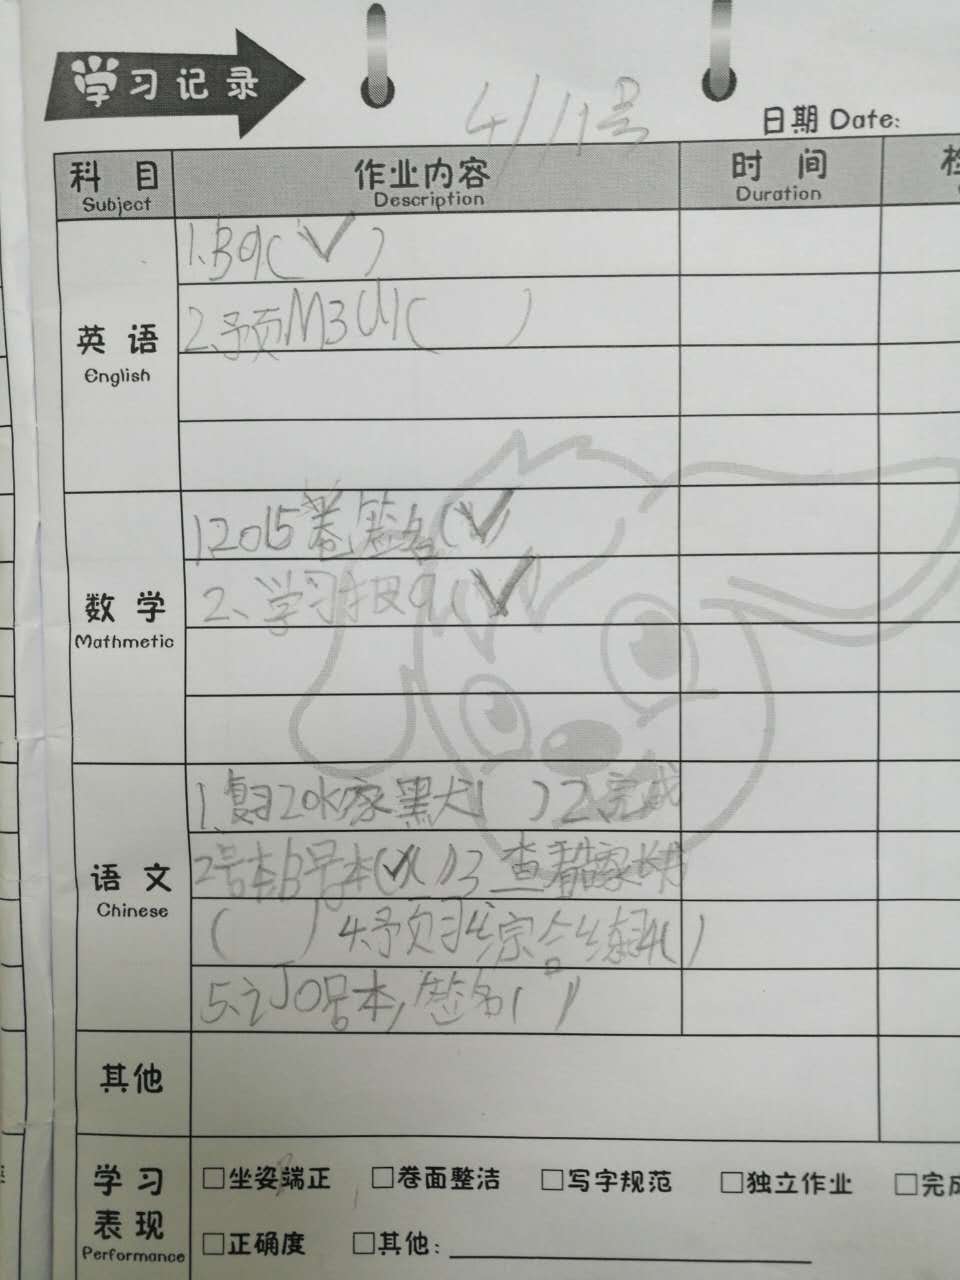 学习记录
4/11号
日期 Date:
科目 作业内容 时间
Subject Description Duration
英语
English
1.B9(✓)
2.予页M3U1( )
数学
Mathmetic
1)2015卷签名(✓
2、学习报9(✓
语文
Chinese
1.复习20 家黑犬( )2完成
2号本6号本(✓)( )3查
( )4.予页习综合练习4( )
5.订0号本,签名( )
其他
学习表现
Performance
□坐姿端正 □卷面整洁 □写字规范 □独立作业 □完成
□正确度 □其他: